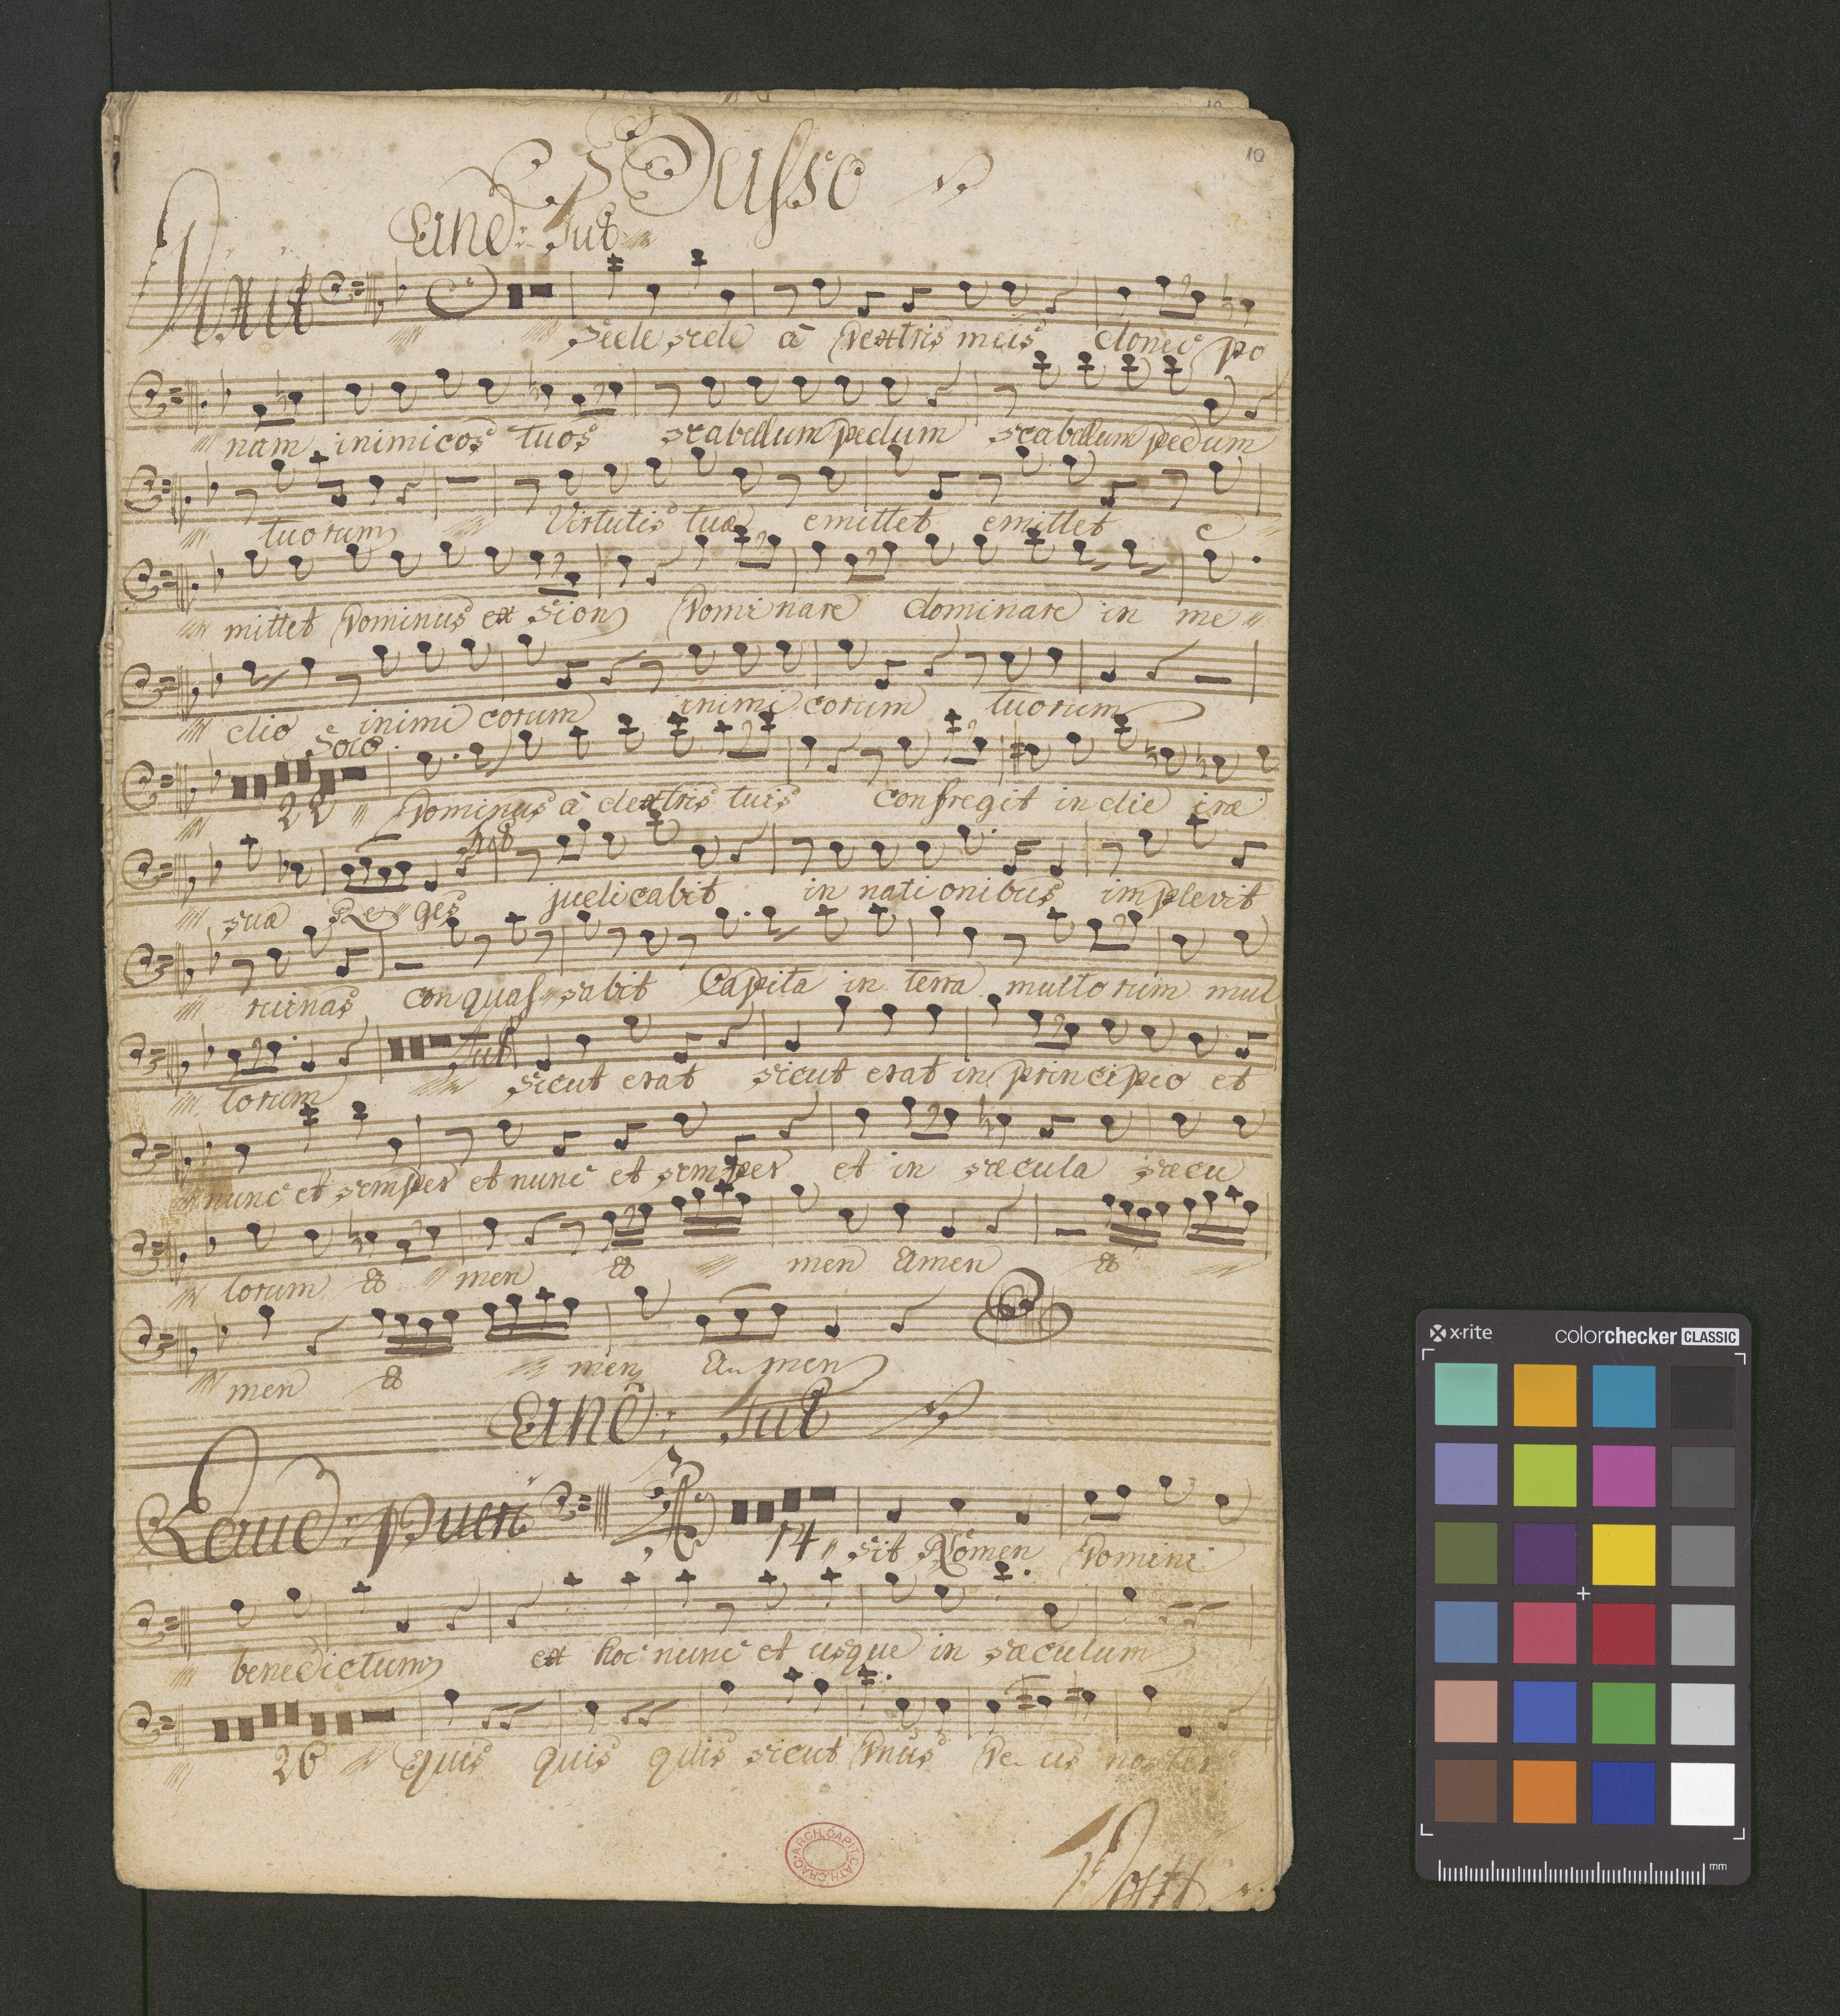 10
Basso
And: Tut
Dixit
Sede sede à Dextris meis donec po
nam inimicos tuos scabellum pedum scabellum pedum
tuorum Virtutis tuæ emittet emittet e
mittet Dominus ex Sion Dominare dominare in me
dio inimicorum inimicorum tuorum
Solo
22 Dominus à dextris tuis confregit in die iræ
Tut
sua Reges judicabit in nationibus implevit
ruinas conquassabit Capita in terra multorum mul
Tut
torum sicut erat sicut erat in principio et
nunc et semper et nunc et semper et in sæcula sæcu
lorum A men A men Amen A
men A men A men
And: Tut
Laud: pueri
3
14 sit Nomen Domini
benedictum ex hoc nunc et usque in sæculum
26 quis quis quis sicut Dnus De us noster
ARCH. CAPIT. CATH. CRAC.
x·rite
colorchecker CLASSIC
mm